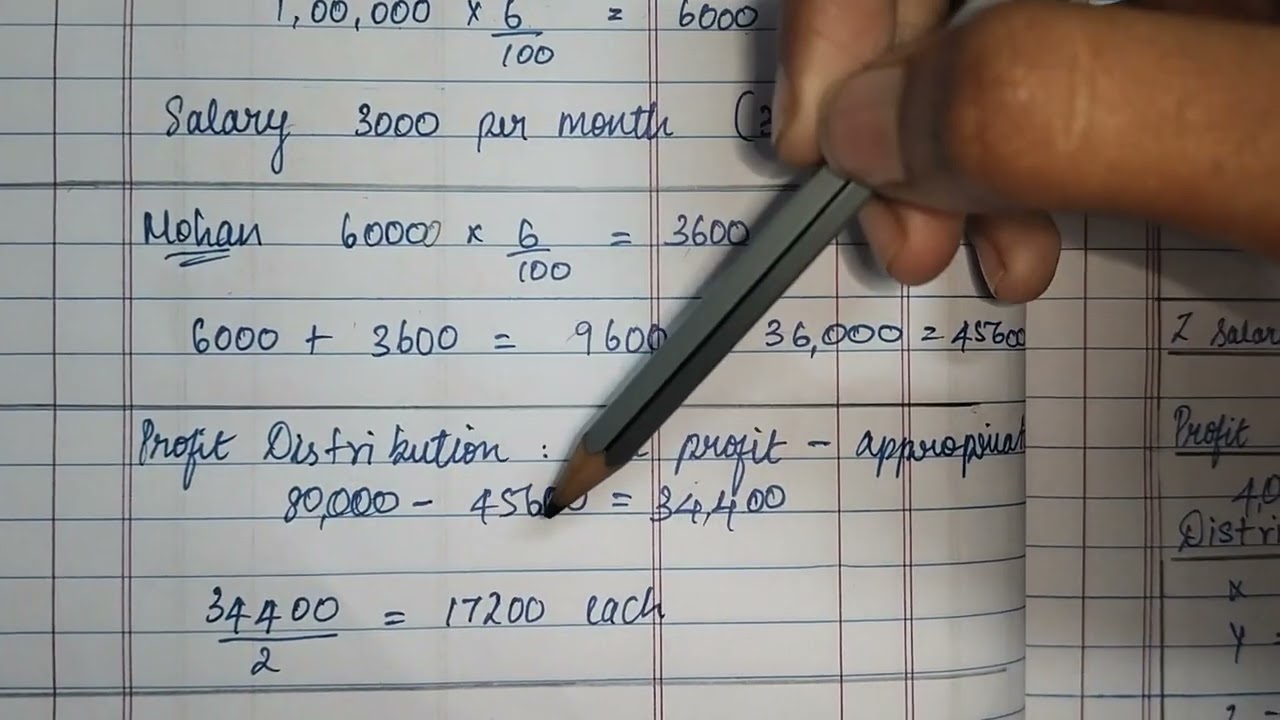 1,00,000 × 6/100 = 6000
Salary 3000 per month (
Mohan 60000 × 6/100 = 3600
6000 + 3600 = 9600 36,000 = 45600
Profit Distribution : profit - appropriat
80,000 - 45600 = 34,400
34400/2 = 17200 each
Z Salar
Profit
4,0
Distri
X
Y =